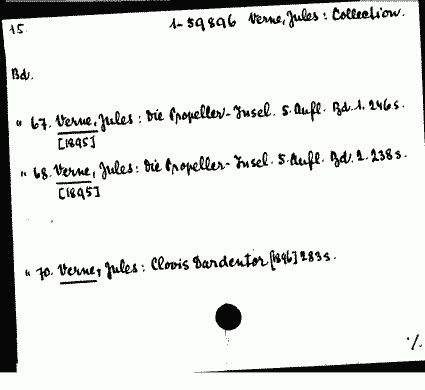 15. 1-59896 Verne, Jules: Collection.
Bd.
" 67. Verne, Jules: Die Propeller-Insel. 5. Aufl. Bd. 1. 246 s.
[1895]
" 68. Verne, Jules: Die Propeller-Insel. 5. Aufl. Bd. 2. 238 s.
[1895]
" 70. Verne, Jules: Clovis Dardentor [1896] 283 s.
·/.